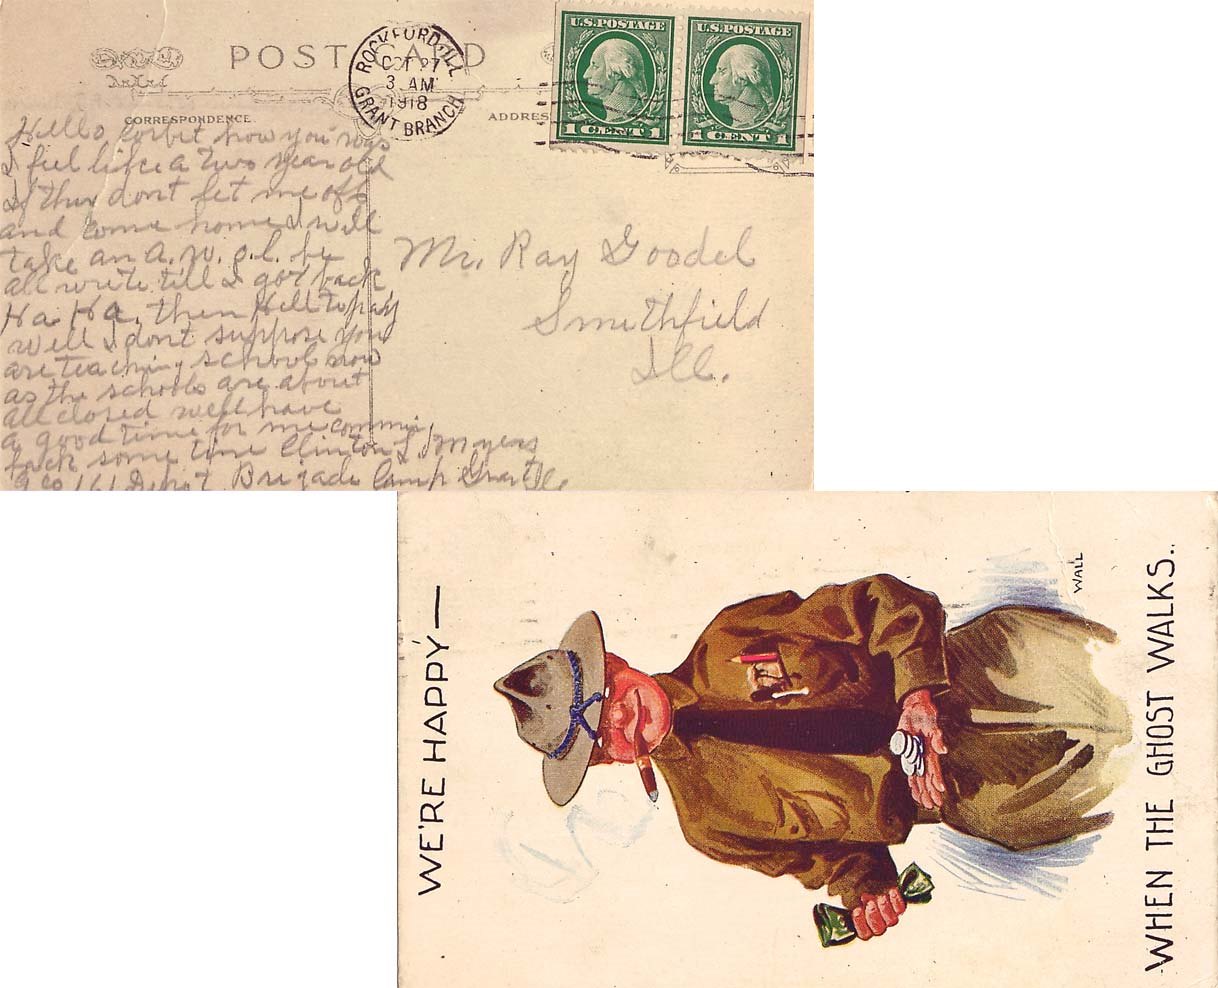 POST CARD
ROCKFORD, ILL
OCT 27
3 AM
1918
GRANT BRANCH
U.S. POSTAGE
1 CENT 1
U.S. POSTAGE
1 CENT 1
CORRESPONDENCE.
ADDRESS
Hello Corbit how you was
I feel like a two year old
If they dont let me off
and come home I will
take an A. W. O. L. be
all write till I got back
Ha Ha, then Hell to pay
well I dont suppose you
are teaching school now
as the schools are about
all closed well have
a good time for me comming
back some time Clinton L Myers
Co 161 Depot Brigade Camp Grant Ill
Mr. Ray Goodel
Smithfield
Ill.
WE'RE HAPPY—
WALL
WHEN THE GHOST WALKS..